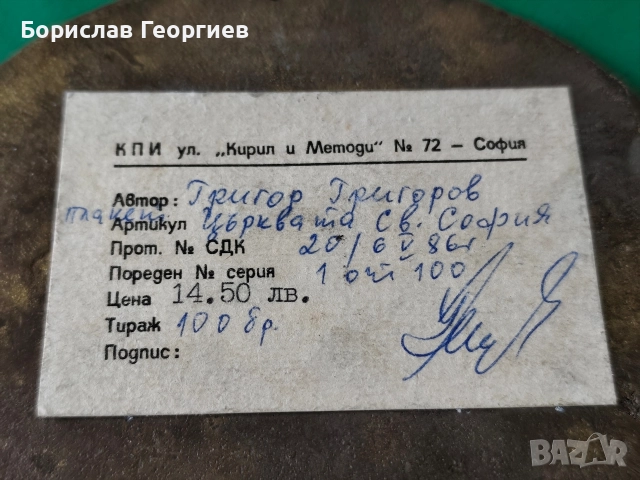 Борислав Георгиев
КПИ ул. „Кирил и Методи" № 72 – София
Автор: Григор Григоров
плакет Артикул Църквата Св. София
Прот. № СДК 20/6 V 86г
Пореден № серия 1 от 100
Цена 14.50 лв.
Тираж 100 бр.
Подпис:
BAZAR